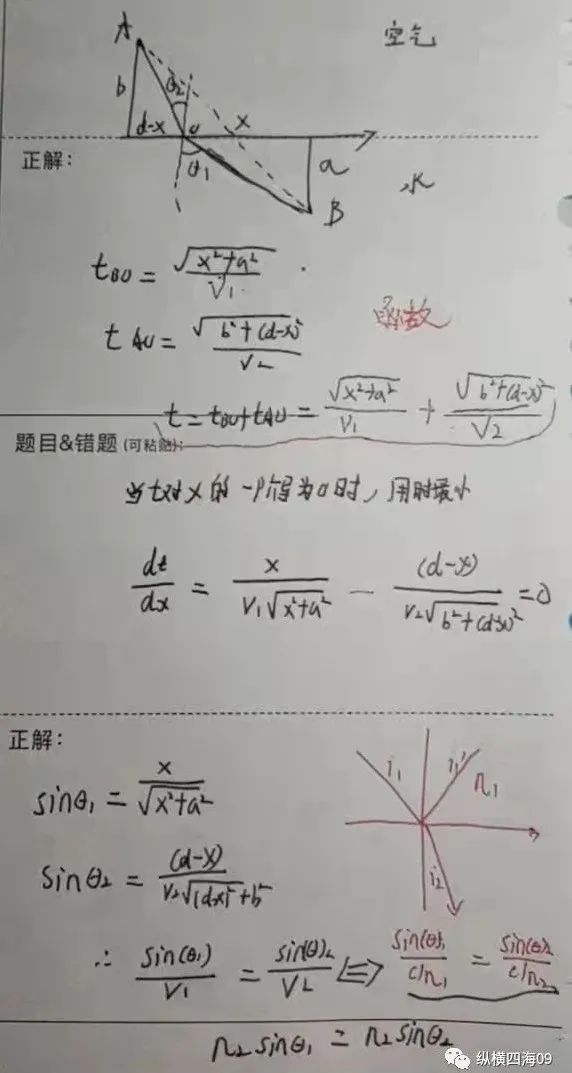 A 空气
b θ₂
d-x 0 x
正解:
θ₁ a 水
B
t_{BO} = \frac{\sqrt{x²+a²}}{V₁}
t_{AO} = \frac{\sqrt{b²+(d-x)²}}{V₂}
函数
t = t_{BO} + t_{AO} = \frac{\sqrt{x²+a²}}{V₁} + \frac{\sqrt{b²+(d-x)²}}{V₂}
题目&错题 (可粘贴):
当t对x的一阶导为0时，用时最小
\frac{dt}{dx} = \frac{x}{V₁\sqrt{x²+a²}} - \frac{(d-x)}{V₂\sqrt{b²+(d-x)²}} = 0
正解:
i₁ i₁' n₁
i₂
sinθ₁ = \frac{x}{\sqrt{x²+a²}}
sinθ₂ = \frac{(d-x)}{V₂\sqrt{(d-x)²+b²}}
∴ \frac{sin(θ₁)}{V₁} = \frac{sin(θ)₂}{V₂} <=> \frac{sin(θ)₁}{c/n₁} = \frac{sin(θ)₂}{c/n₂}
n₂ sinθ₁ = n₂ sinθ₂
纵横四海09